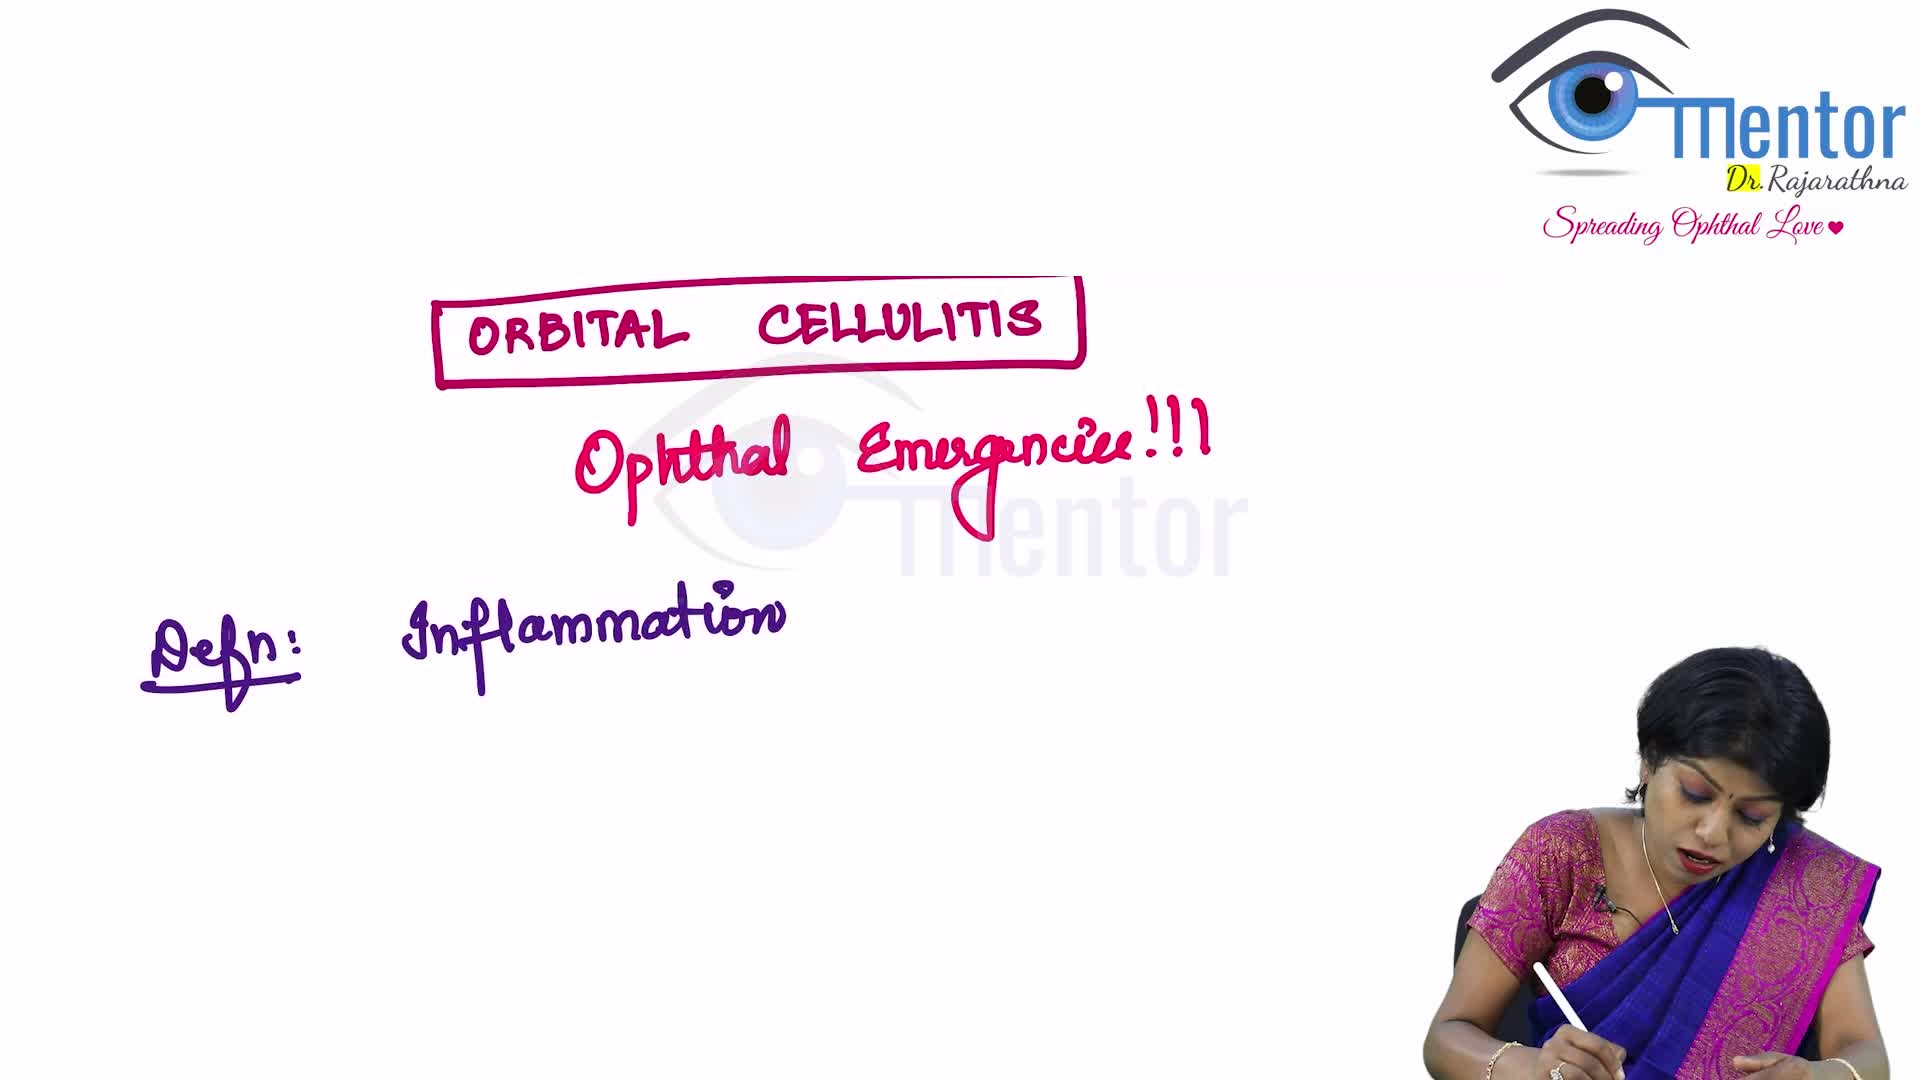 mentor
Dr. Rajarathna
Spreading Ophthal Love
ORBITAL CELLULITIS
Ophthal Emergencies!!!
mentor
Defn: Inflammation